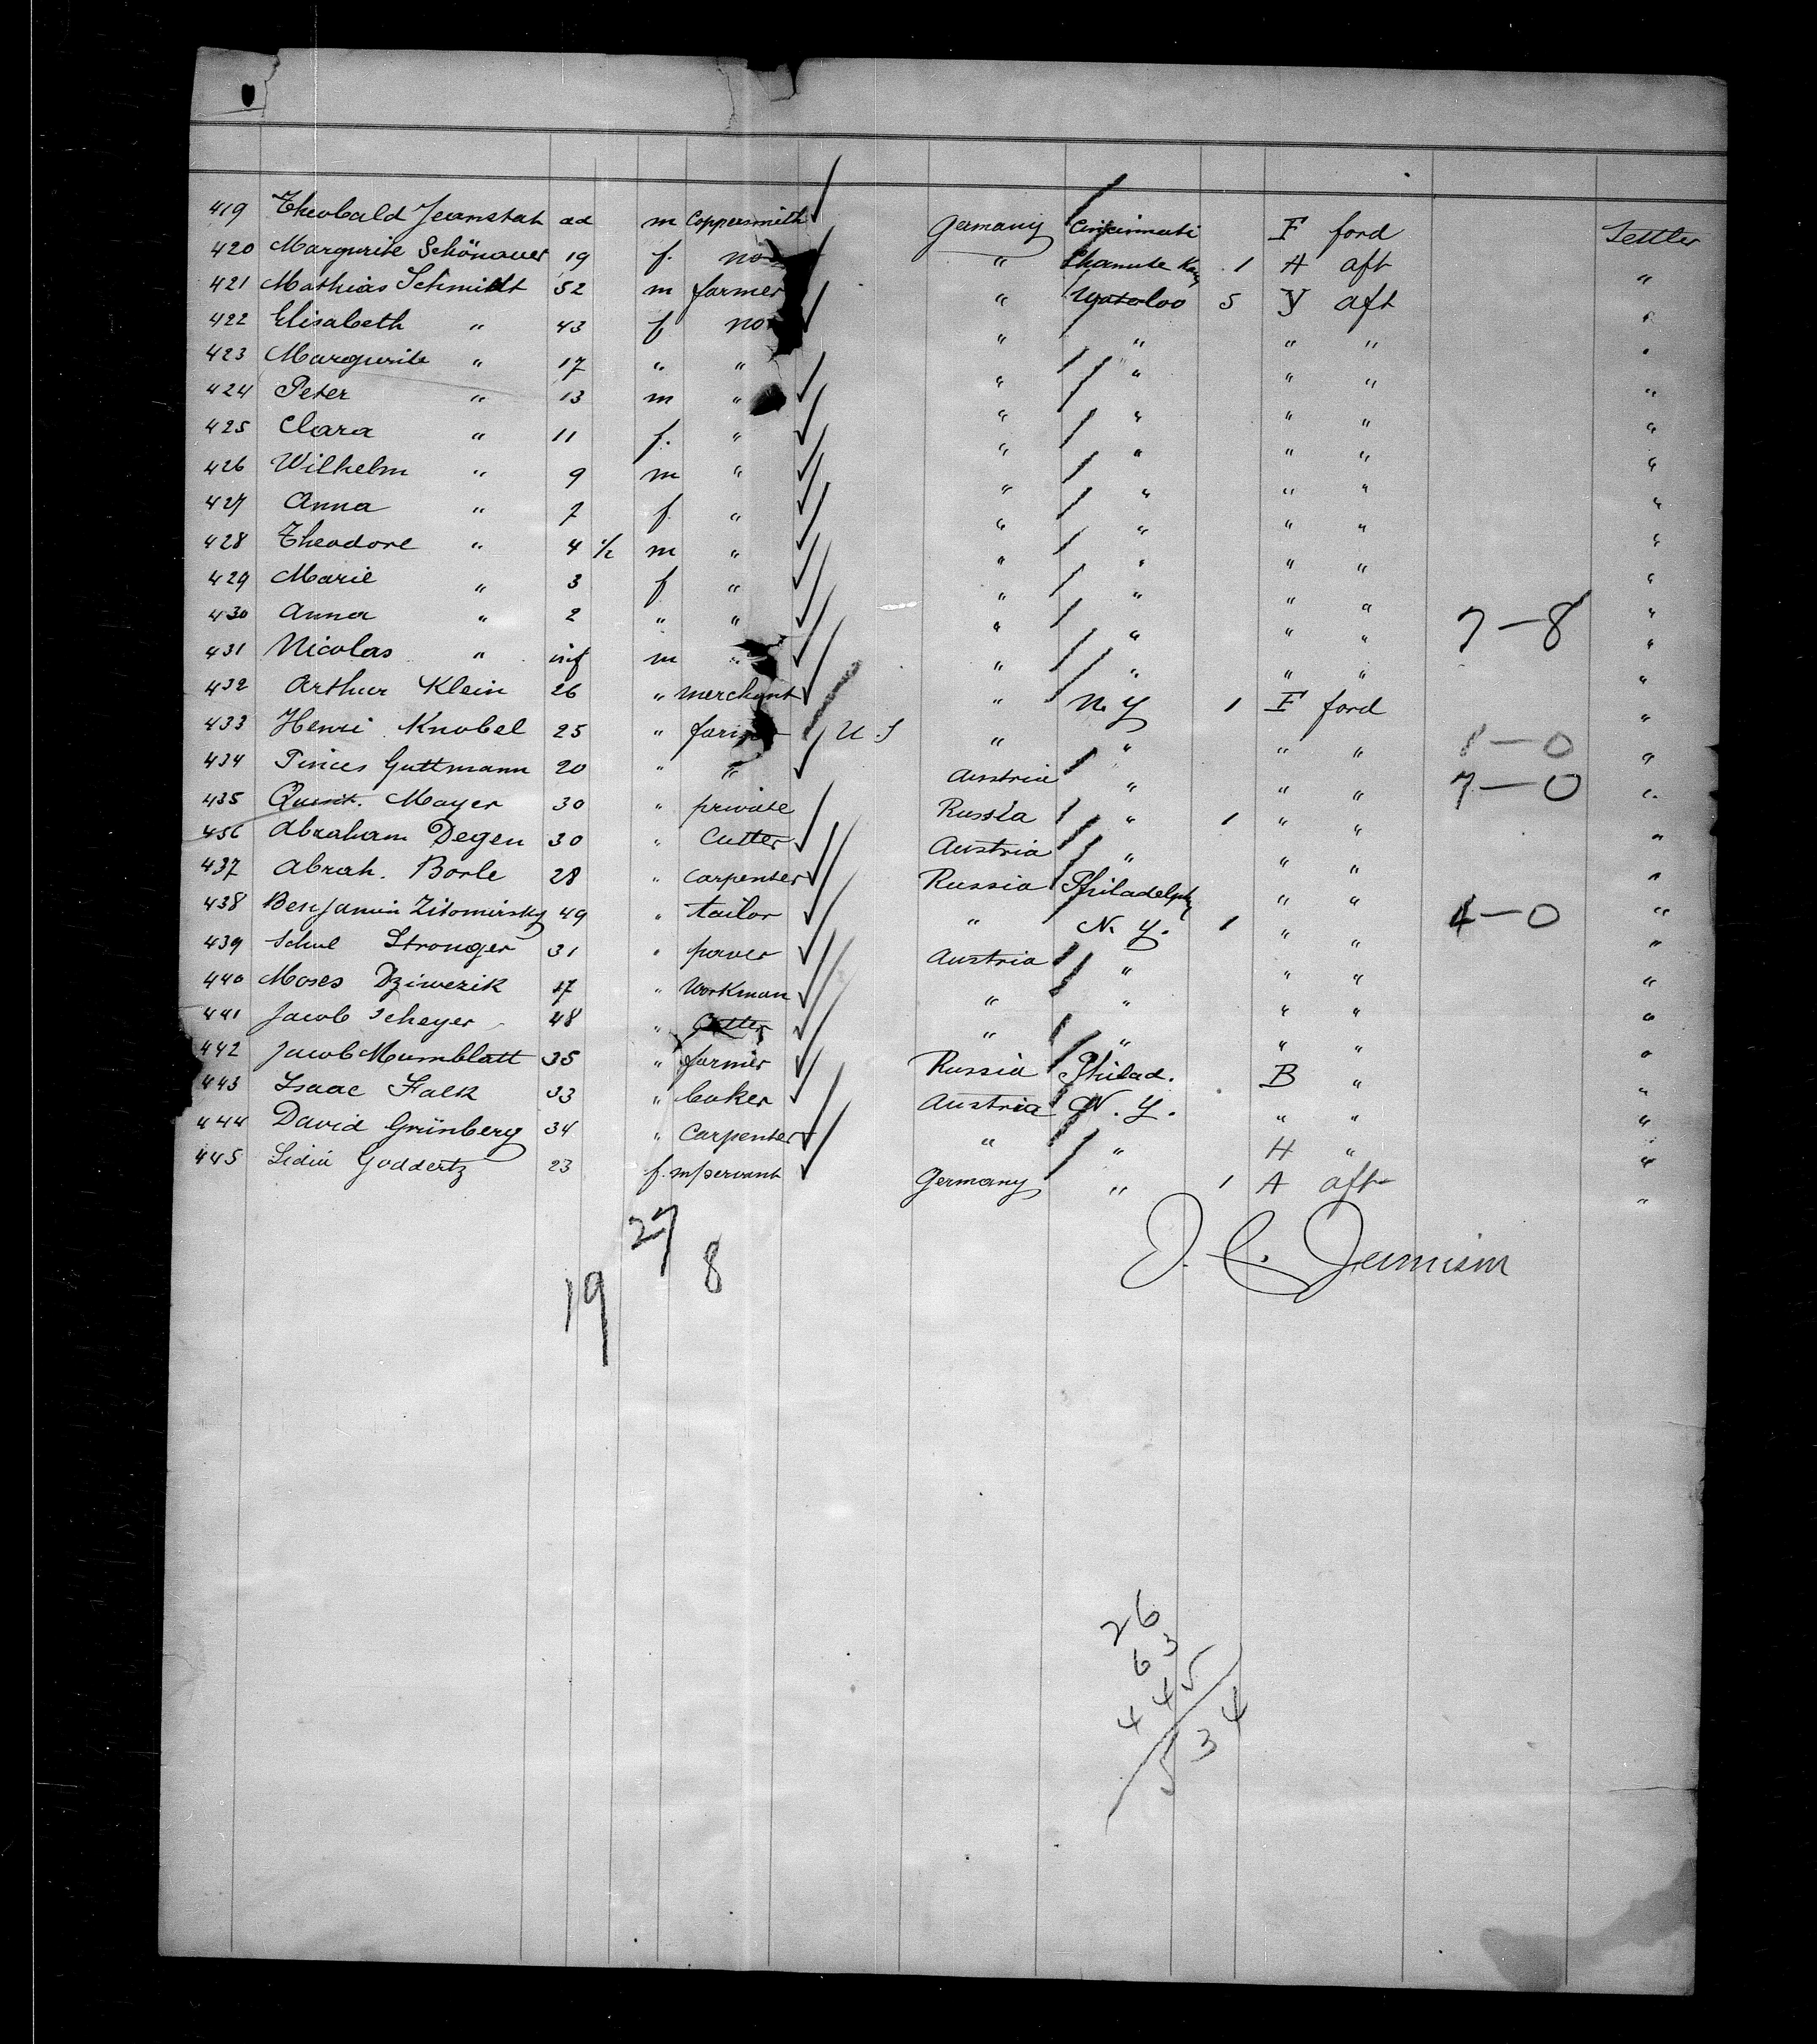 419 Theobald Jeanstat ad m Coppersmith Germany Cincinnati F ford Settler
420 Margurite Schönauer 19 f. no " Chanute Kas 1 A aft "
421 Mathias Schmidt 52 m farmer " Waterloo 5 Y aft "
422 Elisabeth " 43 f no " " " " "
423 Margurite " 17 " " " " " " "
424 Peter " 13 m " " " " " "
425 Clara " 11 f. " " " " " "
426 Wilhelm " 9 m " " " " " "
427 Anna " 7 f " " " " " "
428 Theodore " 4 1/2 m " " " " " "
429 Marie " 3 f " " " " " "
430 Anna " 2 " " " " " " 7-8 "
431 Nicolas " inf m " " " " " "
432 Arthur Klein 26 " merchant " N. Y 1 F ford "
433 Henri Knobel 25 " farmer U.S " " " " 1-0 "
434 Pinces Guttmann 20 " " Austria " " " 7-0 "
435 Quint. Mayer 30 " private Russia " 1 " " "
436 Abraham Degen 30 " Cutter Austria " " " "
437 Abrah. Borle 28 " Carpenter Russia Philadelph " " "
438 Benjamin Zitomirsky 49 " tailor " N. Y. 1 " " 4-0 "
439 Schul Stronger 31 " paver Austria " " " "
440 Moses Dziwezik 17 " Workman " " " " "
441 Jacob Scheyer 48 " Cutter " " " " "
442 Jacob Mumblatt 35 " farmer Russia Philad. B " "
443 Isaac Falk 33 " baker Austria N. Y. " " "
444 David Grünberg 34 " Carpenter " " H " "
445 Lidia Goddertz 23 f. m/servant Germany " 1 A aft "
27
19 8
26
63
445
534